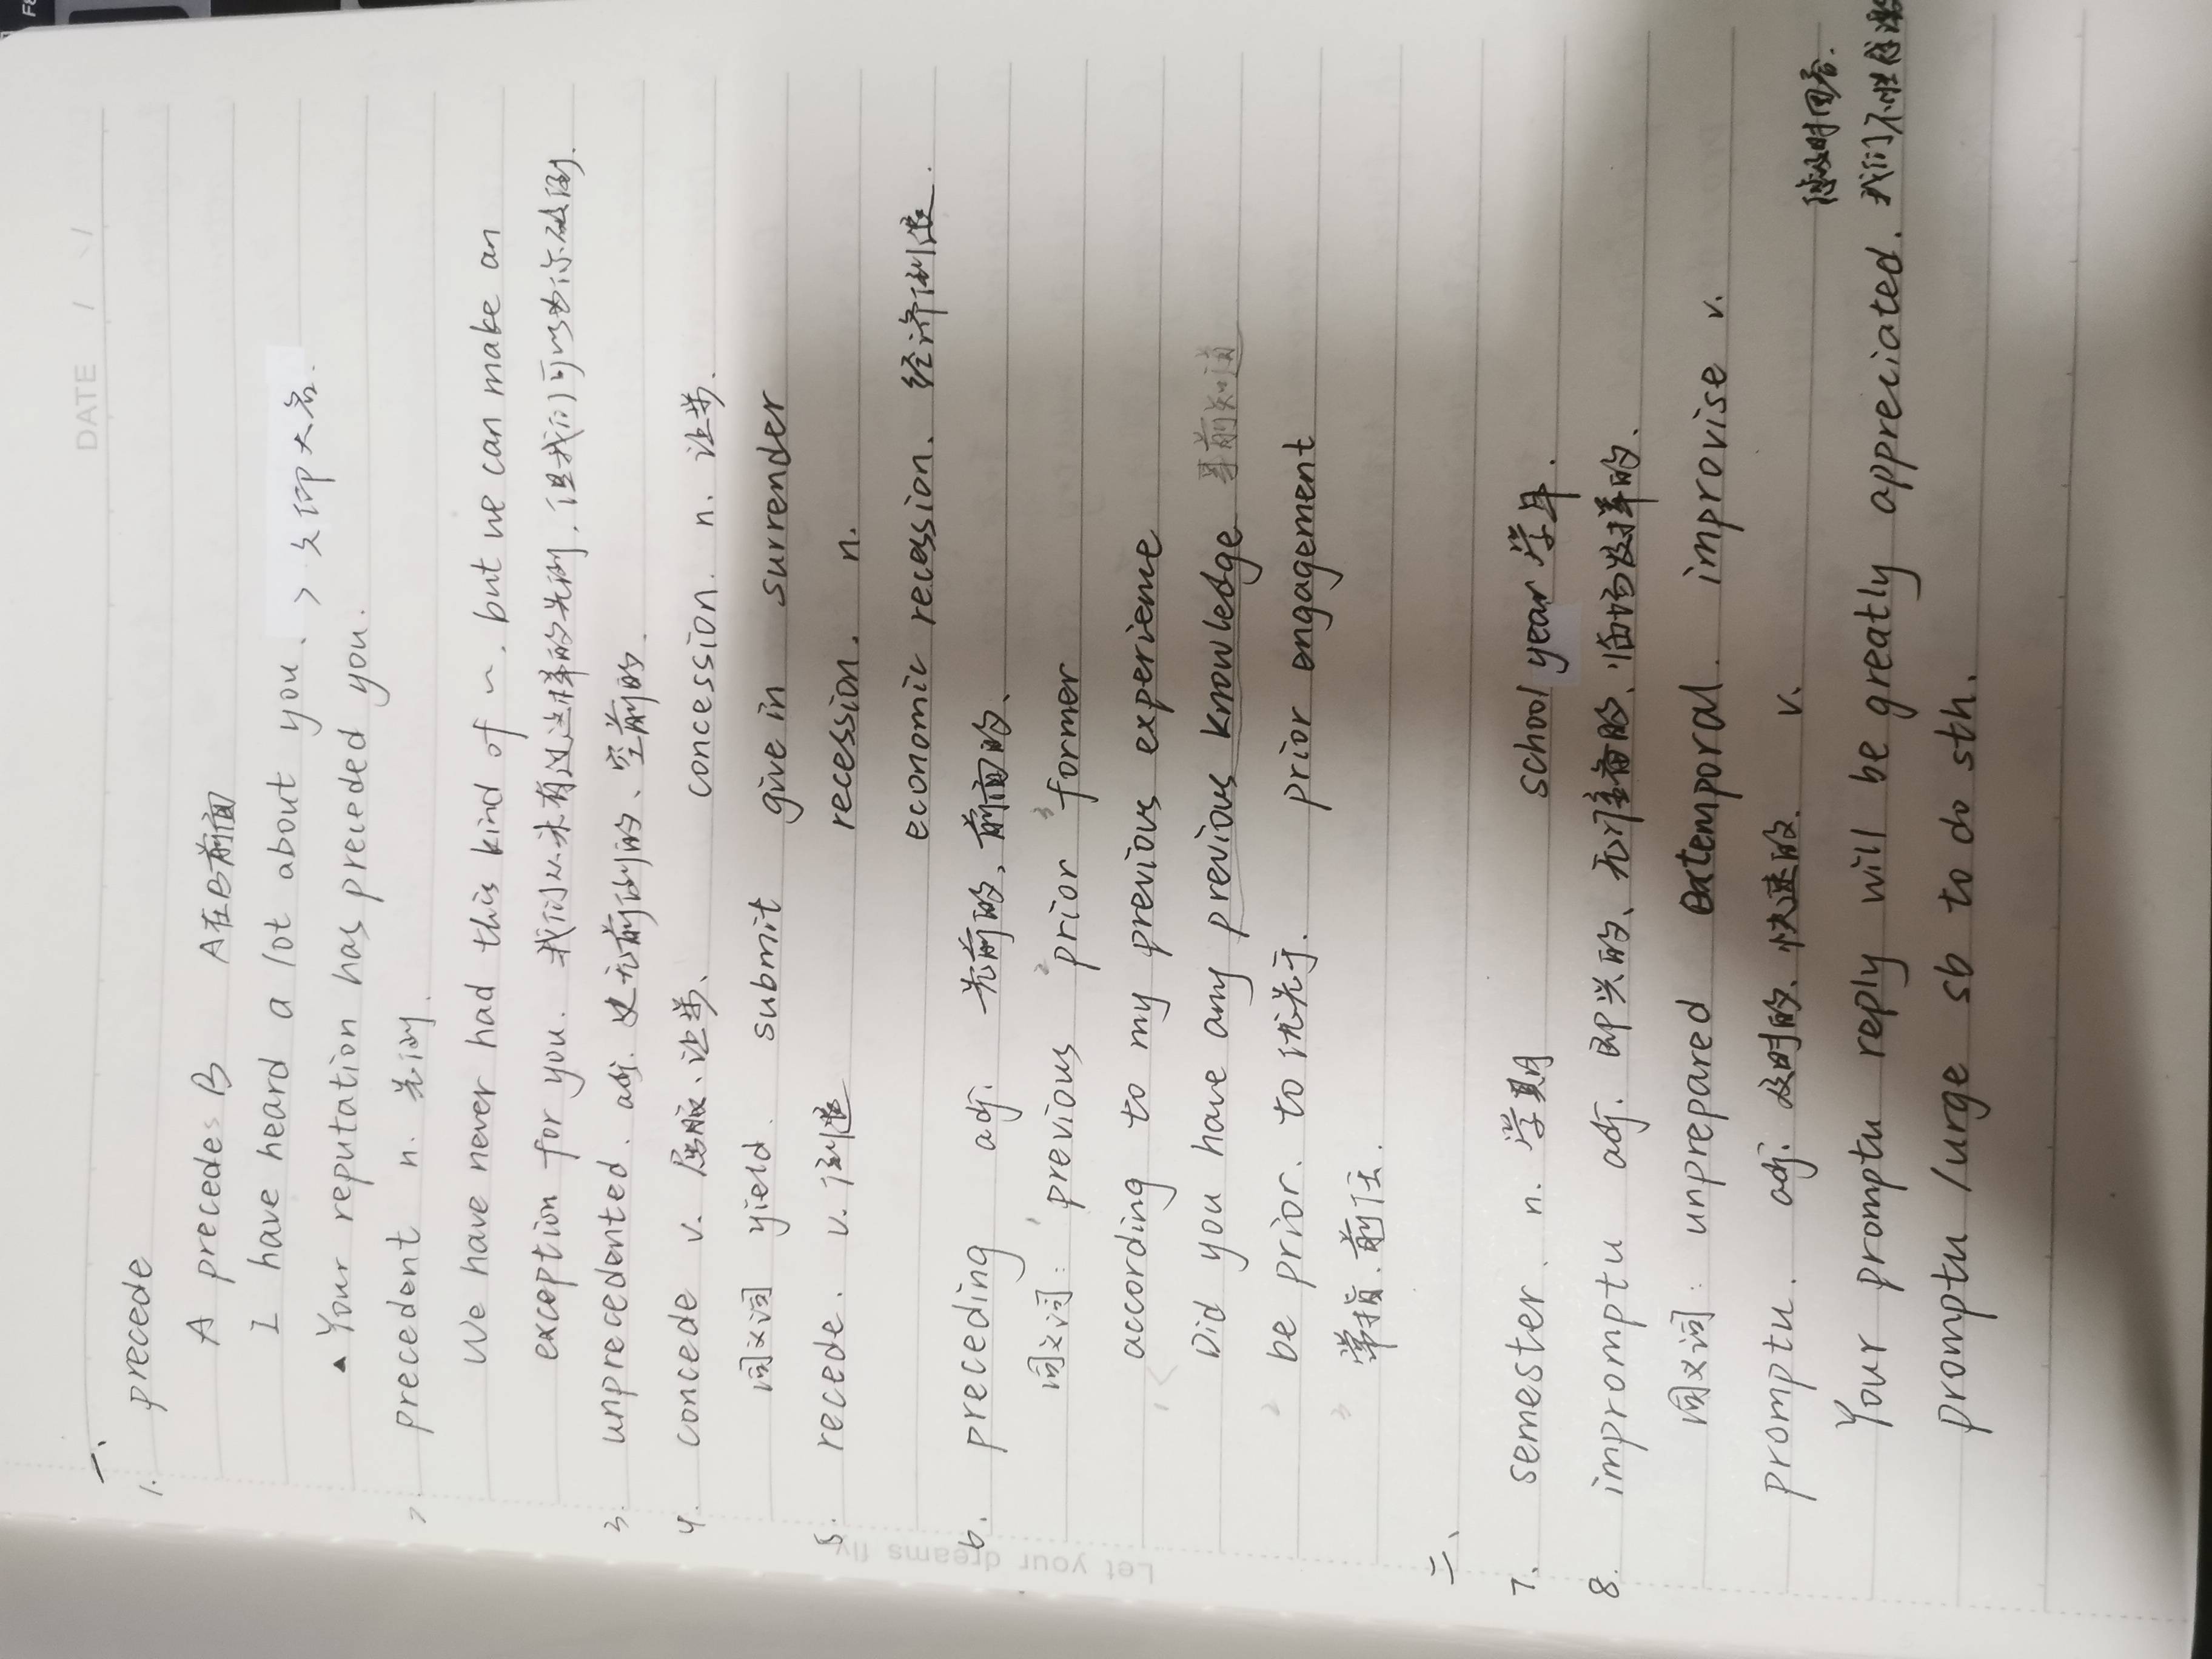 DATE / /
一、
1. precede
A precedes B A在B前面
I have heard a lot about you. > 久仰大名.
▲ Your reputation has preceded you.
2. precedent n. 先例.
We have never had this kind of ~, but we can make an
exception for you. 我们从未有过这样的先例, 但我们可以为你破例.
3. unprecedented. adj. 史无前例的、空前的.
4. concede v. 屈服、让步、 concession. n. 让步.
同义词 yield. submit give in surrender
5. recede. v. 衰退 recession. n.
economic recession. 经济衰退.
6. preceding adj. 先前的, 前面的、
同义词: 1 previous 2 prior 3 former
1< according to my previous experience
Did you have any previous knowledge 事前知道
2 be prior to 优先于. prior engagement
3 常指、前任.
二、
7. semester. n. 学期 school year 学年.
8. impromptu adj. 即兴的、无准备的、临场发挥的、
同义词: unprepared extemporal. improvise v.
promptu. adj. 及时的、快速的. v.
您及时回答.
Your promptu reply will be greatly appreciated. 我们不胜
promptu /urge sb to do sth.
Let your dreams fly